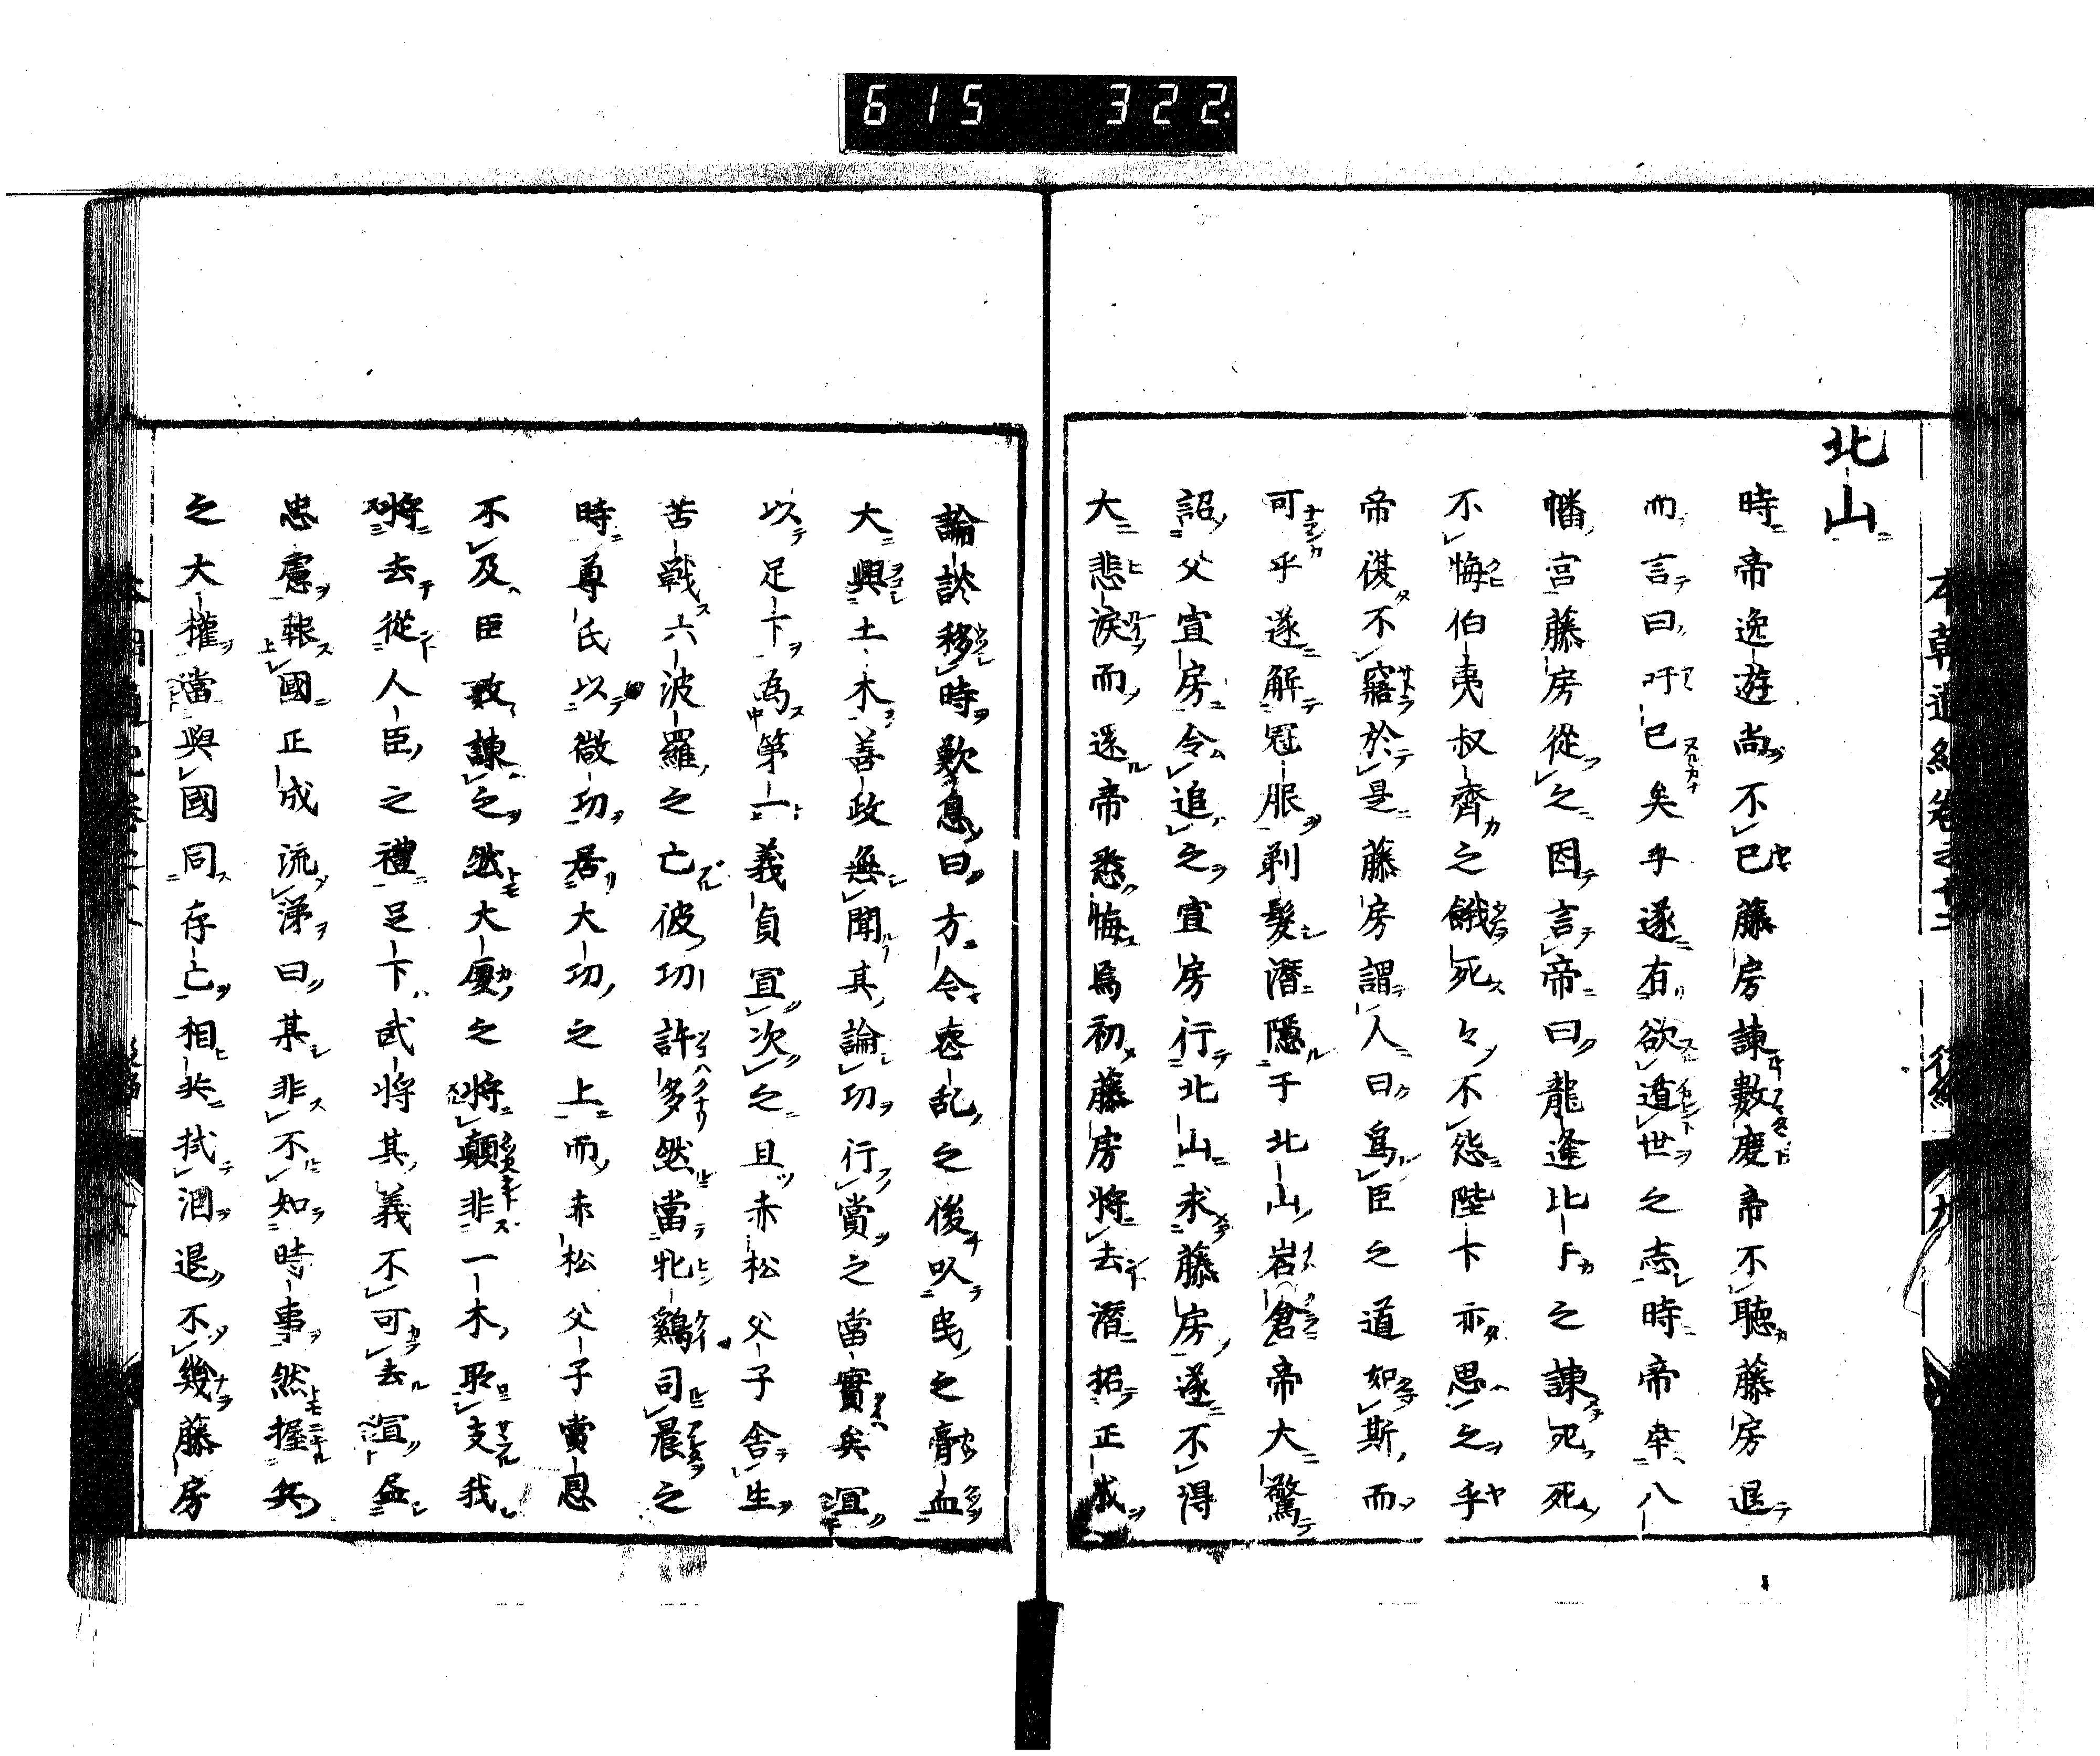 615 322
北山
時帝逸遊尚不已藤房諫數度帝不聽藤房退
而言曰吁已矣乎遂有欲遁世之志時帝幸八
幡宮藤房從之因言帝曰龍逢比干之諫死死
不悔伯夷叔齊之餓死々不怨陛下亦思之乎
帝復不寤於是藤房謂人曰為臣之道如斯而
可乎遂解冠服剃髮潛隱于北山岩倉帝大驚
詔父宣房令追之宣房行北山求藤房遂不得
大悲淚而還帝悉悔焉初藤房將去潛招正成
論談移時歎息曰方今喪乱之後以民之膏血
大興土木善政無聞其論功行賞之當實矣宜
以足下為第一義貞宜次之且赤松父子舍生
苦戰六波羅之亡彼功許多然當牝鷄司晨之
時尊氏以微功居大功之上而赤松父子賞恩
不及臣敢諫之然大廈之將顛非一木所支我
將去從人臣之禮足下武將其義不可去宜益
忠慮報國正成流涕曰某非不知時事然握兵
之大權當與國同存亡相共拭淚退不幾藤房